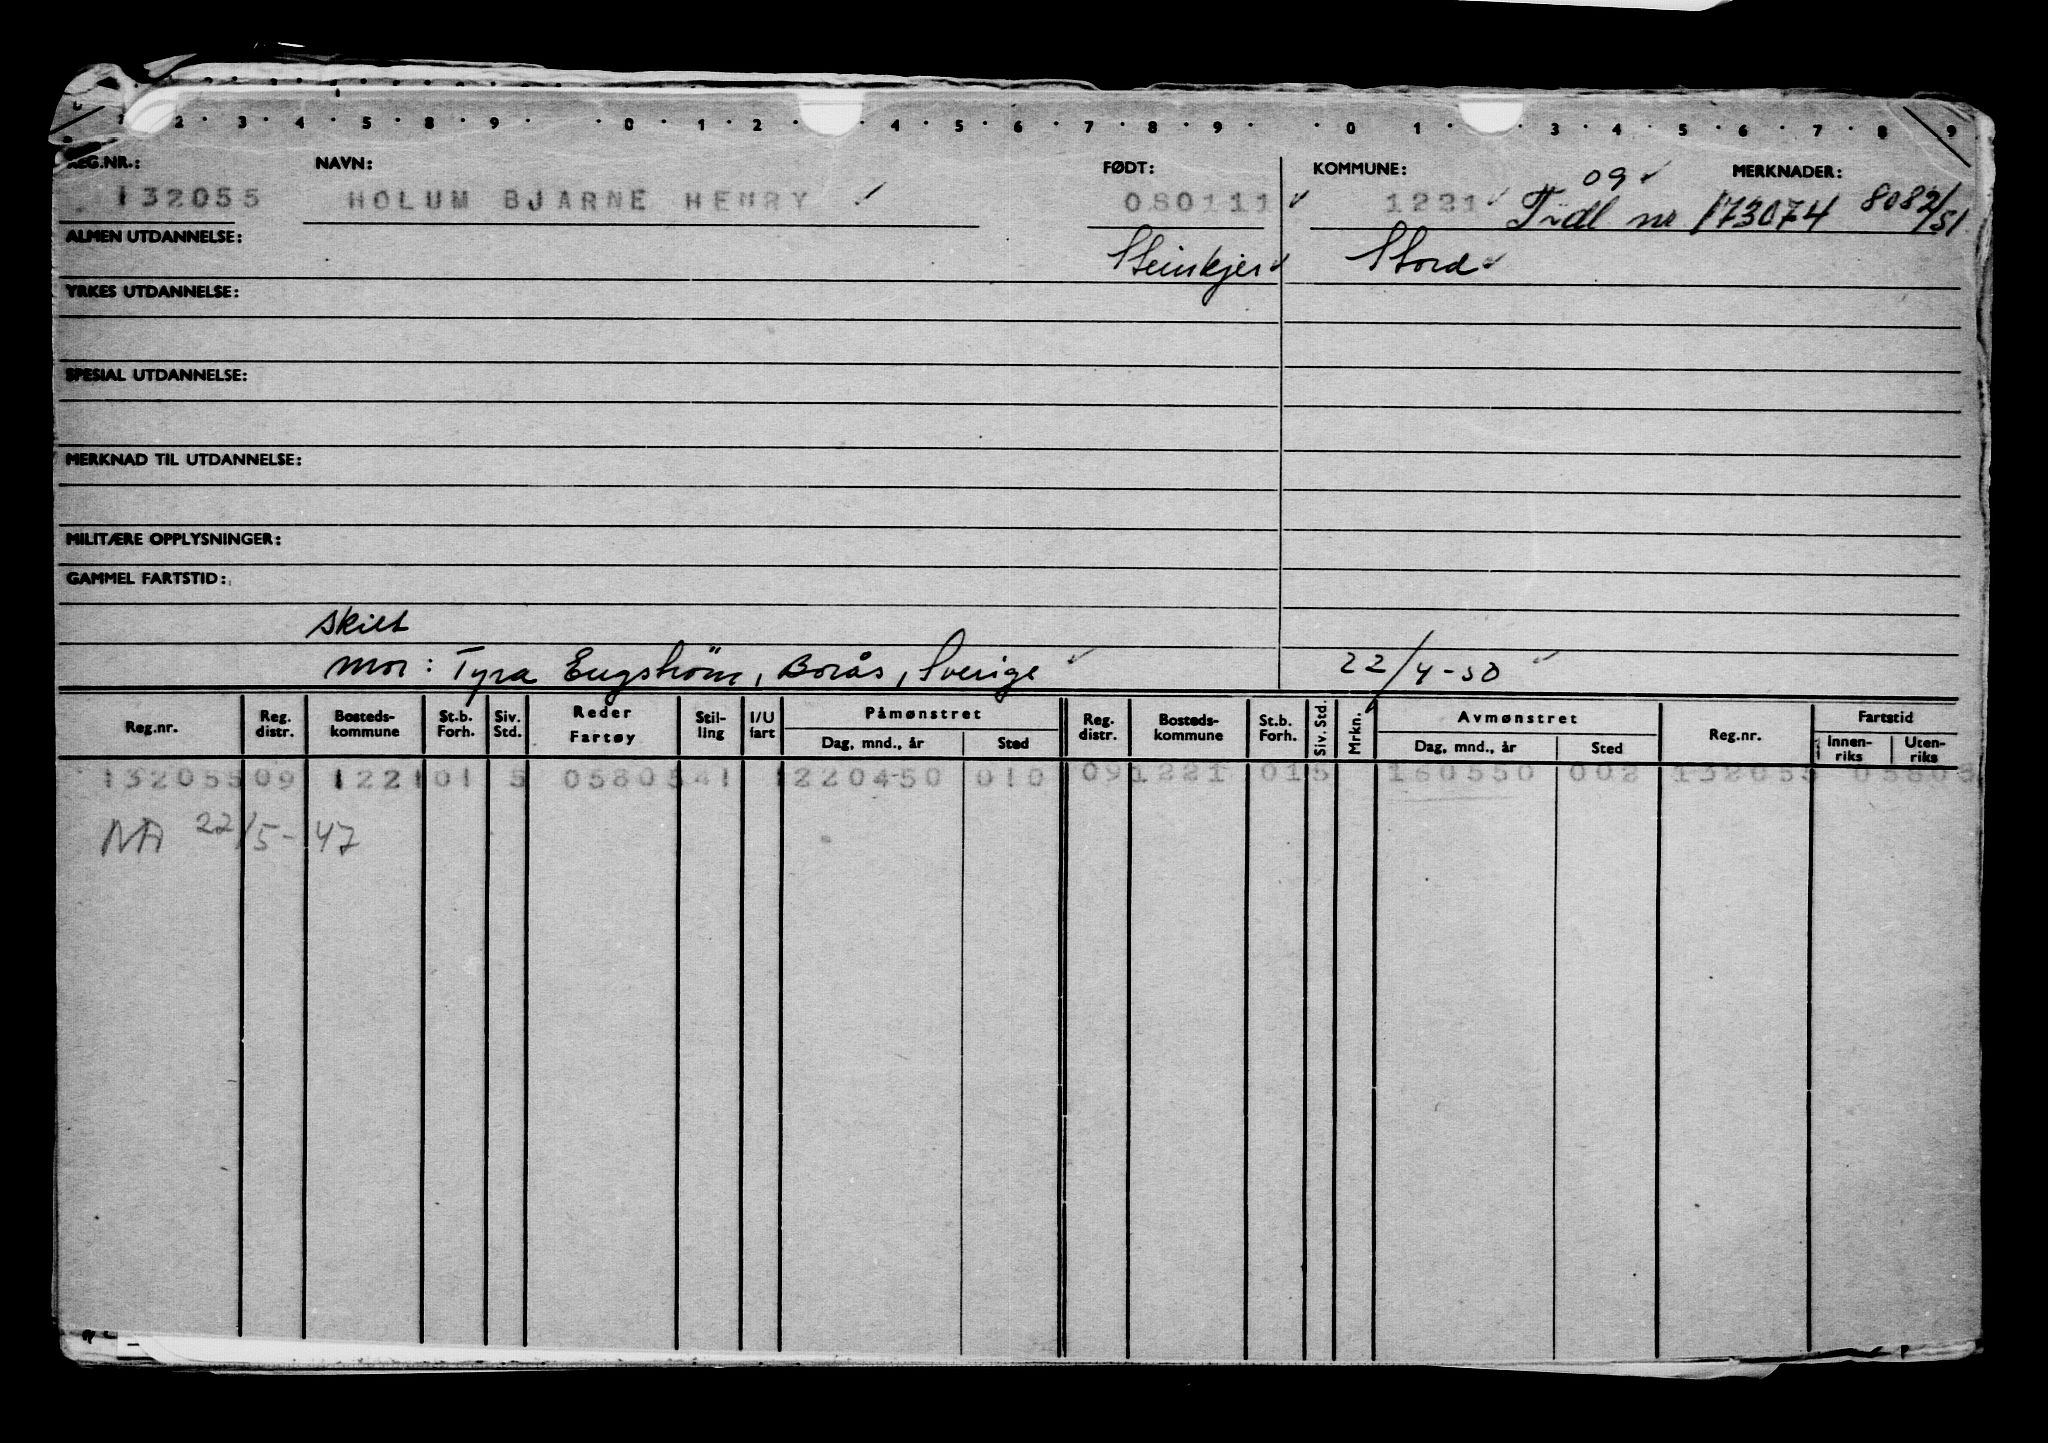 1 2 3 4 5 8 9 0 1 2 4 5 6 7 8 9 0 1 3 4 5 6 7 8 9
REG.NR.: NAVN: FØDT: KOMMUNE: 09 MERKNADER:
132055 HOLUM BJARNE HENRY 080111 1221 Tidl nr 173074 8082/51
ALMEN UTDANNELSE: Steinkjer Stord
YRKES UTDANNELSE:
SPESIAL UTDANNELSE:
MERKNAD TIL UTDANNELSE:
MILITÆRE OPPLYSNINGER:
GAMMEL FARTSTID:
skilt
mor: Tyra Engström, Borås, Sverige 22/4-50
Reg.nr. Reg. distr. Bosteds- kommune St.b. Forh. Siv. Std. Reder Fartøy Stil- ling I/U fart Påmønstret Dag, mnd., år Sted Reg. distr. Bosteds- kommune St.b. Forh. Siv. Std. Mrkn. Avmønstret Dag, mnd., år Sted Reg.nr. Fartstid Innen- riks Uten- riks
132055 09 1221 01 5 05805 41 1 220450 010 09 1221 01 5 160550 002 132055 05805
NA 22/5-47